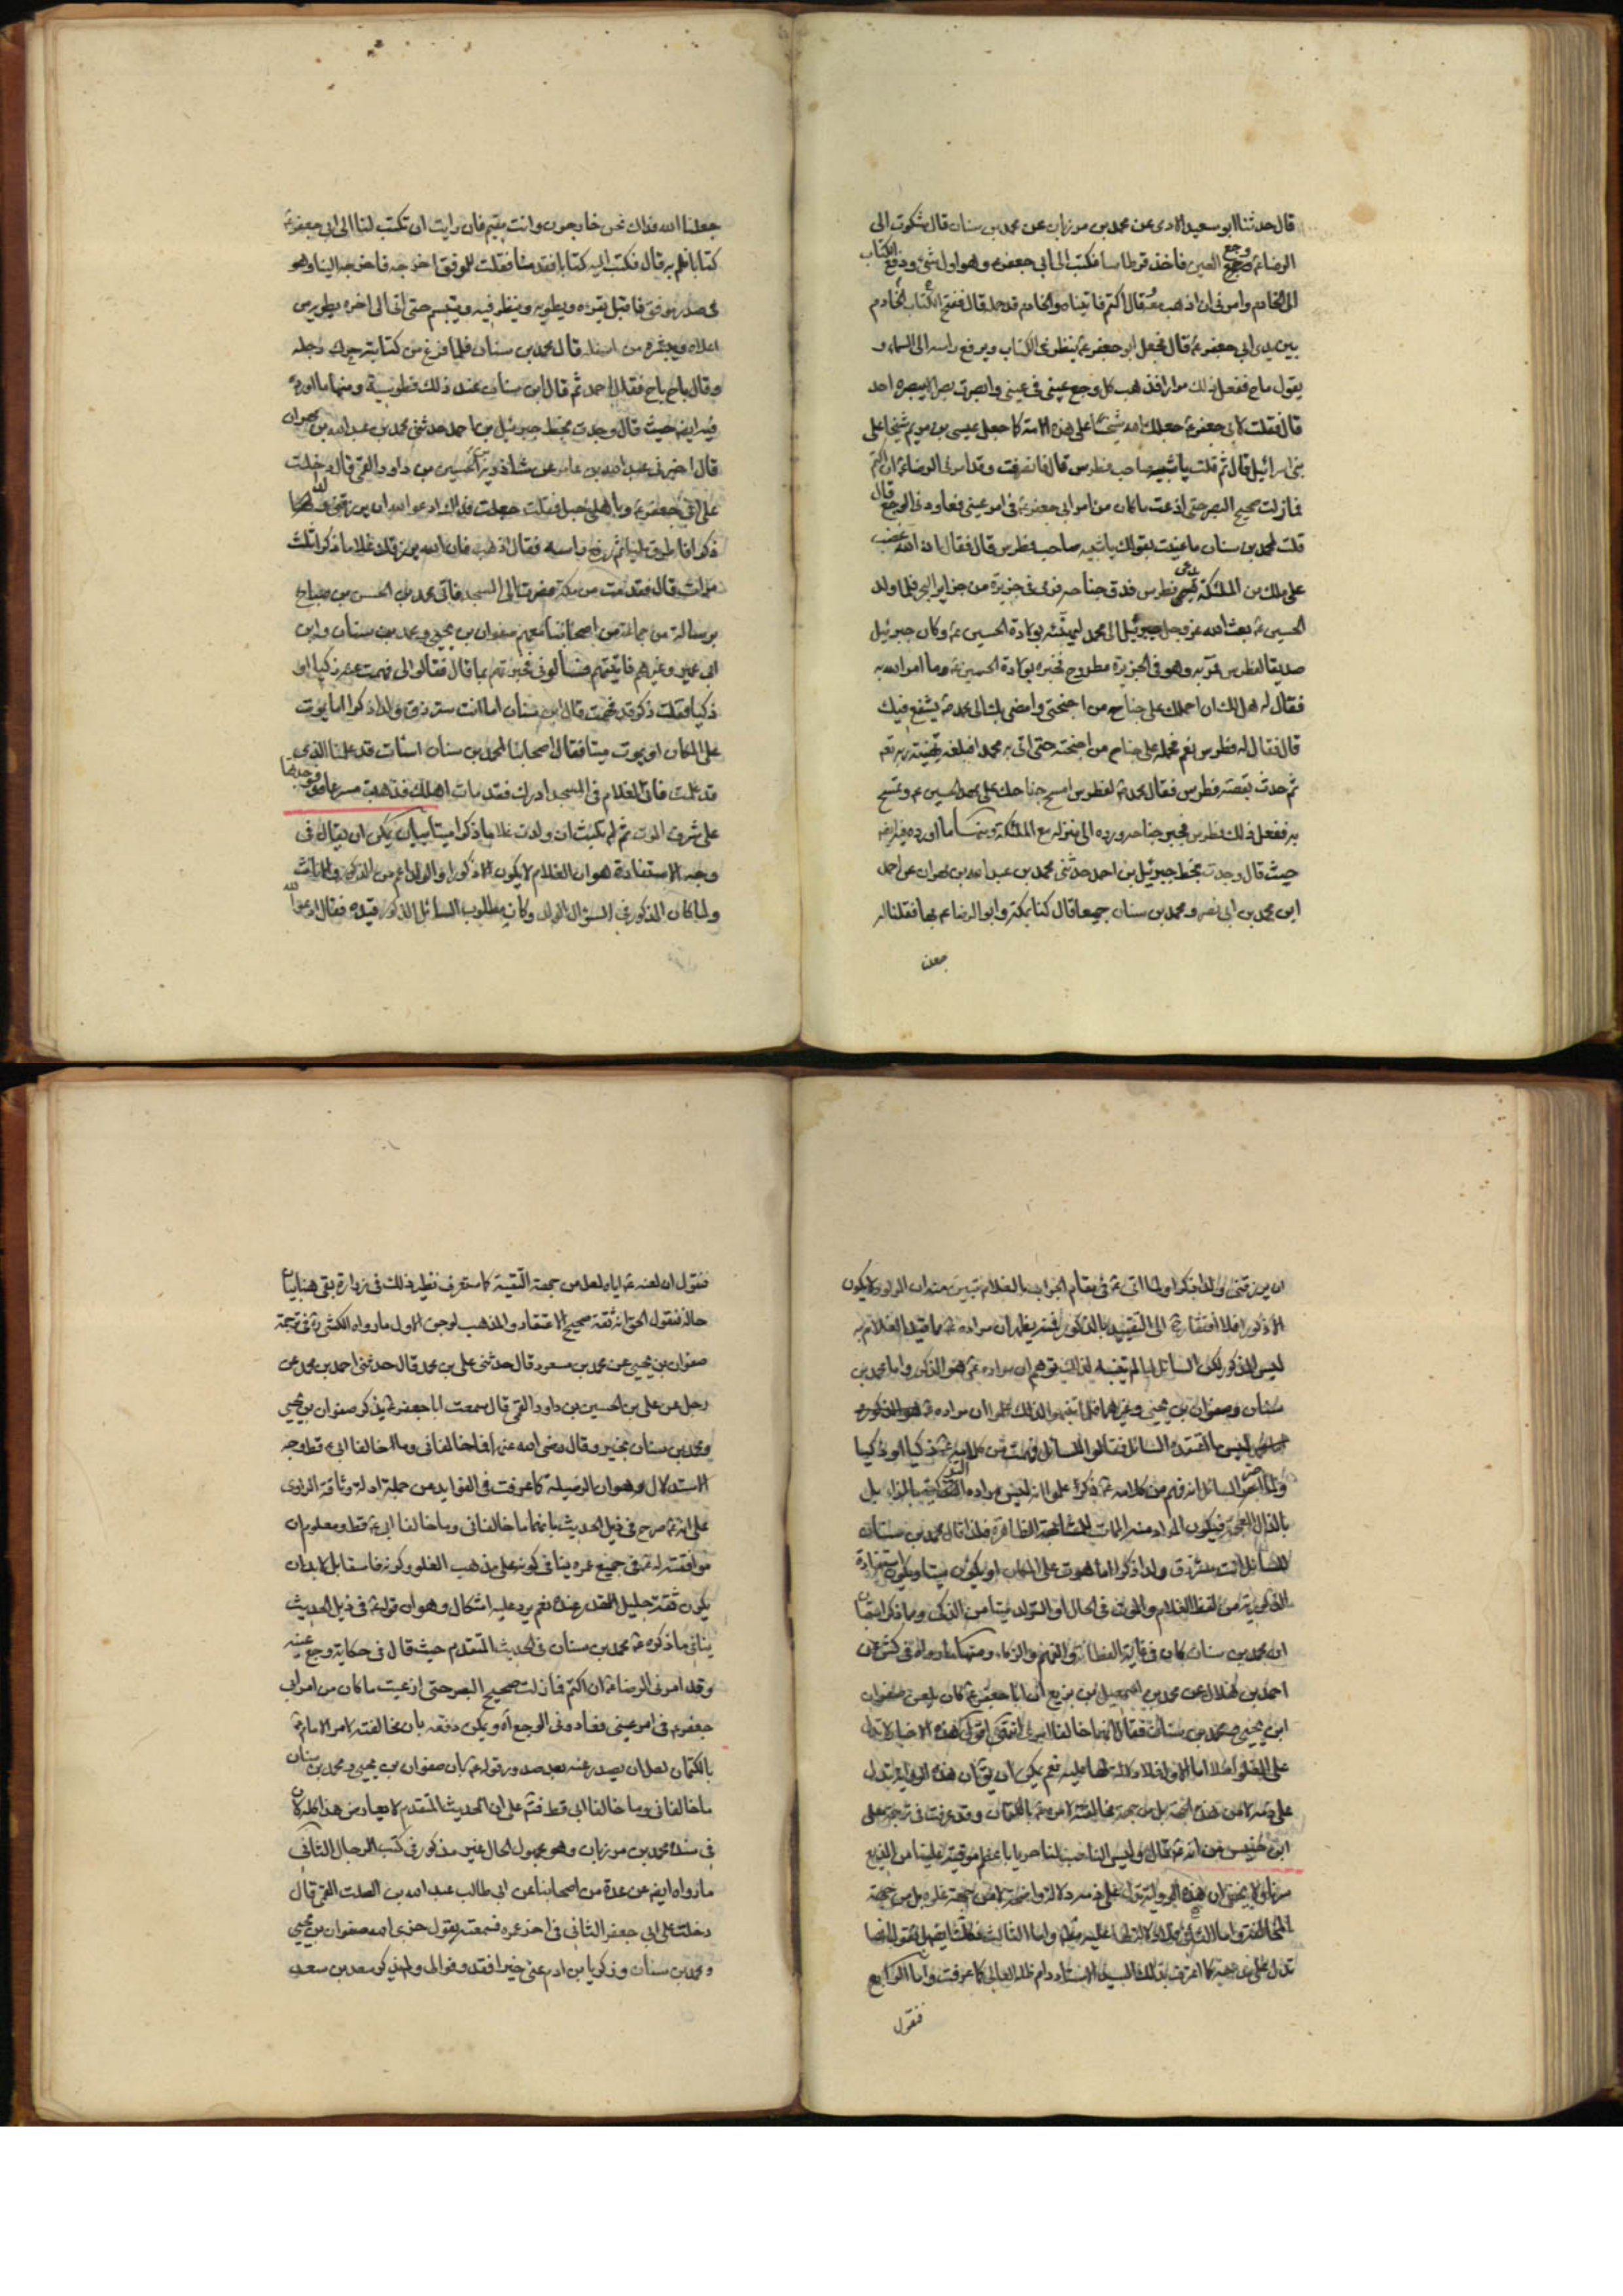 قال حدثنا ابو سعيد الادمى عن محمد بن مرزبان عن محمد بن سنان قال شكوت الى
الرضا ع وجع العين فاخذ قرطاسا فكتب الى ابى جعفر ع وهو اول شئ ودفع الكتاب
الى الخادم وامرنى ان اذهب معه وقال اكتم فاتيناه والخادم قد حمله قال ففتح الكتاب الخادم
بين يدى ابى جعفر ع قال فجعل ابو جعفر ع ينظر فى الكتاب ويرفع راسه الى السماء و
يقول ناج ففعل ذلك مرارا فذهب كل وجع عينى فى عينى وابصرت بصرا لا يبصره احد
قال فقلت لابى جعفر ع جعلك الله شيخا على هذه الامة كما جعل عيسى بن مريم شيخا على
بنى اسرائيل قال ثم قلت يا شبيه صاحب فطرس قال فانصرفت وقد امرنى الرضا ع ان اكتم
فما زلت صحيح البصر حتى اذعت ما كان من امر ابى جعفر ع فى امر عينى فعاودنى الوجع قال
قلت لمحمد بن سنان ما عنيت بقولك يا شبيه صاحب فطرس قال فقال ان الله غضب
على ملك من الملئكة يدعى فطرس فدق جناحه فرمى فى جزيرة من جزاير البحر فلما ولد
الحسين ع بعث الله عز وجل جبرئيل الى محمد ليهنئه بولادة الحسين ع وكان جبرئيل
صديقا لفطرس فمر به وهو فى الجزيرة مطروح فخبره بولادة الحسين ع وما امر الله به
فقال له هل لك ان احملك على جناح من اجنحتى وامضى بك الى محمد ص يشفع فيك
قال فقال له فطرس نعم فحمله على جناح من اجنحته حتى اتى به محمدا فبلغه تهنية ربه تعه
ثم حدث بقصة فطرس فقال محمد ص لفطرس امسح جناحك على مهد الحسين ع وتمسح
به ففعل ذلك فطرس فجبر جناحه ورده الى منزله مع الملئكة ومنها ما اورده فيه ايضه
حيث قال وجدت بخط جبرئيل بن احمد حدثنى محمد بن عبد الله بن مهران عن احمد
ابن محمد بن ابى نصر ومحمد بن سنان جميعا قال كنا بمكة وابو الرضا ع بها فقلنا له
جعلنا
جعلنا الله فداك نحن خارجون وانت مقيم فان رايت ان تكتب لنا الى ابى جعفر ع
كتابا نلم به قال فكتب اليه كتابا فقدمنا فقلت للموفق اخرجه فاخرجه الينا وهو
فى صدر موفق فاقبل يقرءه ويطويه وينظر فيه ويتبسم حتى اتى الى اخره يطويه من
اعلاه وينشره من اسفله قال محمد بن سنان فلما فرغ من كتابته حرك رجله
وقال ناج ناج فقال احمد ثم قال ابن سنان عند ذلك فطرسية ومنها ما اورده
فيه ايضه حيث قال وجدت بخط جبرئيل بن احمد حدثنى محمد بن عبد الله بن مهران
قال اخبرنى عبد الله بن عامر عن شاذويه بن الحسين بن داود القمى قال دخلت
على ابى جعفر ع وباهلى حبل فقلت جعلت فداك ادعو الله ان يرزقنى ولدا
ذكرا فاطرق مليا ثم رفع راسه فقال اذهب فان الله يرزقك غلاما ذكرا ثلث
مرات قال فقدمت من مكة فصرت الى المسجد فاتى محمد بن الحسن بن صباح
برسالة من جماعة من اصحابنا منهم صفوان بن يحيى ومحمد بن سنان وابن
ابى عمير وغيرهم فاتيتهم فسألونى فخبرتهم بما قال فقالوا لى فهمت عنه زكيا او
ذكيا فقلت ذكر قد فهمت قال ابن سنان اما انت سترزق ولدا ذكرا اما يموت
على المكان او يموت ميتا فقال اصحابنا لمحمد بن سنان اسأت قد علمنا الذى
قد علمت فاتى الغلام فى المسجد ادرك فقد مات اهلك فذهبت مسرعا فوجدتها
على شرف الموت ثم لم تلبث ان ولدت غلاما ذكرا ميتا بيان يمكن ان يقال فى
وجه الاستفادة هو ان الغلام لا يكون الا ذكرا والولد اعم من الذكور والاناث
ولما كان المذكور فى السؤال الولد وكان مطلوب السائل الذكور قيده فقال ادعو الله
ان يرزقنى ولدا ذكرا ولما اتى ع فى مقام الجواب بالغلام تبين منه ان الولد لا يكون
الا ذكورا فلا افتقار ح الى التقييد بالذكور فمنه يعلم ان مراده ع مما قيد الغلام به
ليس الذكور لكن السائل لما لم يتنبه لذلك توهم ان مراده ع هو الذكور واما محمد بن
سنان وصفوان بن يحيى وغيرهما فلما تنبهوا لذلك علموا ان مراده ع
ليس ما اعتقده السائل فقالوا للسائل فهمت من كلامه ع ذكيا او زكيا
ولما اصر السائل انه فهم من كلامه ع ذكرا علموا انه ليس مراده بالزاء بل
بالذال المعجمة فيكون المراد منه المات للمشابهة الظاهرة فلذا قال محمد بن سنان
للسائل انت سترزق ولدا ذكرا اما يموت على المكان او يكون ميتا ويكون استفادة
الذكورية من لفظ الغلام والموت فى الحال او التولد ميتا من الذكى وما ذكرا بقا
ان محمد بن سنان كان فى غاية الفطانة والفهم والزكاء ومنها ما رواه فى كش عن
احمد بن هلال عن محمد بن اسمعيل بن بزيع ان ابا جعفر ع كان لعن صفوان
ابن يحيى ومحمد بن سنان فقال انهما خالفا امرى انتهى اقول هذه الاخبار لا تدل
على الغلو اصلا اما الاول فلا دلالة لها عليه نعم يمكن ان يق ان هذه الرواية تدل
على ذمه لا من هذه الجهة بل من جهة مخالفته لامره ع بالكتمان وقد عرفت فى ترجمة على
مرتابا ولا يخفى ان هذه الرواية تدل على ذمه دلالة واضحة لا من جهة غلوه بل من جهة
المخالفة واما الثانى فلا دلالة لها عليه مطلقا واما الثالث
تدل على مدحه كما اعترف بذلك السيد الاستاد دام ظله العالى كما عرفت واما الرابع
فنقول
فنقول ان لعنه ع اياه لعله من جهة التقية كما ستعرف نظير ذلك فى زرارة بقى هنا بيان
حاله فنقول الحق انه ثقة صحيح الاعتقاد والمذهب لوجوه الاول ما رواه الكشى ره فى ترجمة
صفوان بن يحيى عن محمد بن مسعود قال حدثنى على بن محمد قال حدثنى احمد بن محمد عن
رجل عن على بن الحسين بن داود القمى قال سمعت ابا جعفر ع يذكر صفوان بن يحيى
ومحمد بن سنان بخير وقال رضى الله عنهما فما خالفانى وما خالفا ابى ع قط وجه
الاستدلال هو ان الوسيلة كما عرفت فى الفوايد من جملة ادلة وثاقة الراوى
على انه ع صرح فى ذيل الحديث بانهما ما خالفانى وما خالفا ابى ع قط ومعلوم ان
موافقته له ع فى جميع عمره ينافى كونه على مذهب الغلو وكونه فاسقا بل لا بد ان
يكون ثقة جليل القدر عنده نعم يرد عليه اشكال وهو ان قوله ع فى ذيل الحديث
ينافى ما ذكره ع محمد بن سنان فى الحديث المتقدم حيث قال فى حكاية وجع عينه
وقد امرنى الرضا ع ان اكتم فما زلت صحيح البصر حتى اذعت ما كان من امر ابى
جعفر ع فى امر عينى فعاودنى الوجع آه ويمكن دفعه بان مخالفته لامر الامام ع
بالكتمان لعل ان يصدر عنه بعد صدور قوله ع بان صفوان بن يحيى ومحمد بن سنان
ما خالفانى وما خالفا ابى قط فتم على ان الحديث المتقدم لا يعارض هذا كله لان
فى سنده محمد بن مرزبان وهو مجهول الحال غير مذكور فى كتب الرجال الثانى
ما رواه ايضه عن عدة من اصحابنا عن ابى طالب عبد الله بن الصلت القمى قال
دخلت على ابى جعفر الثانى فى اخر عمره فسمعته يقول جزى الله صفوان بن يحيى
ومحمد بن سنان وزكريا بن ادم عنى خيرا فقد وفوا لى ولم يذكر سعد بن سعد